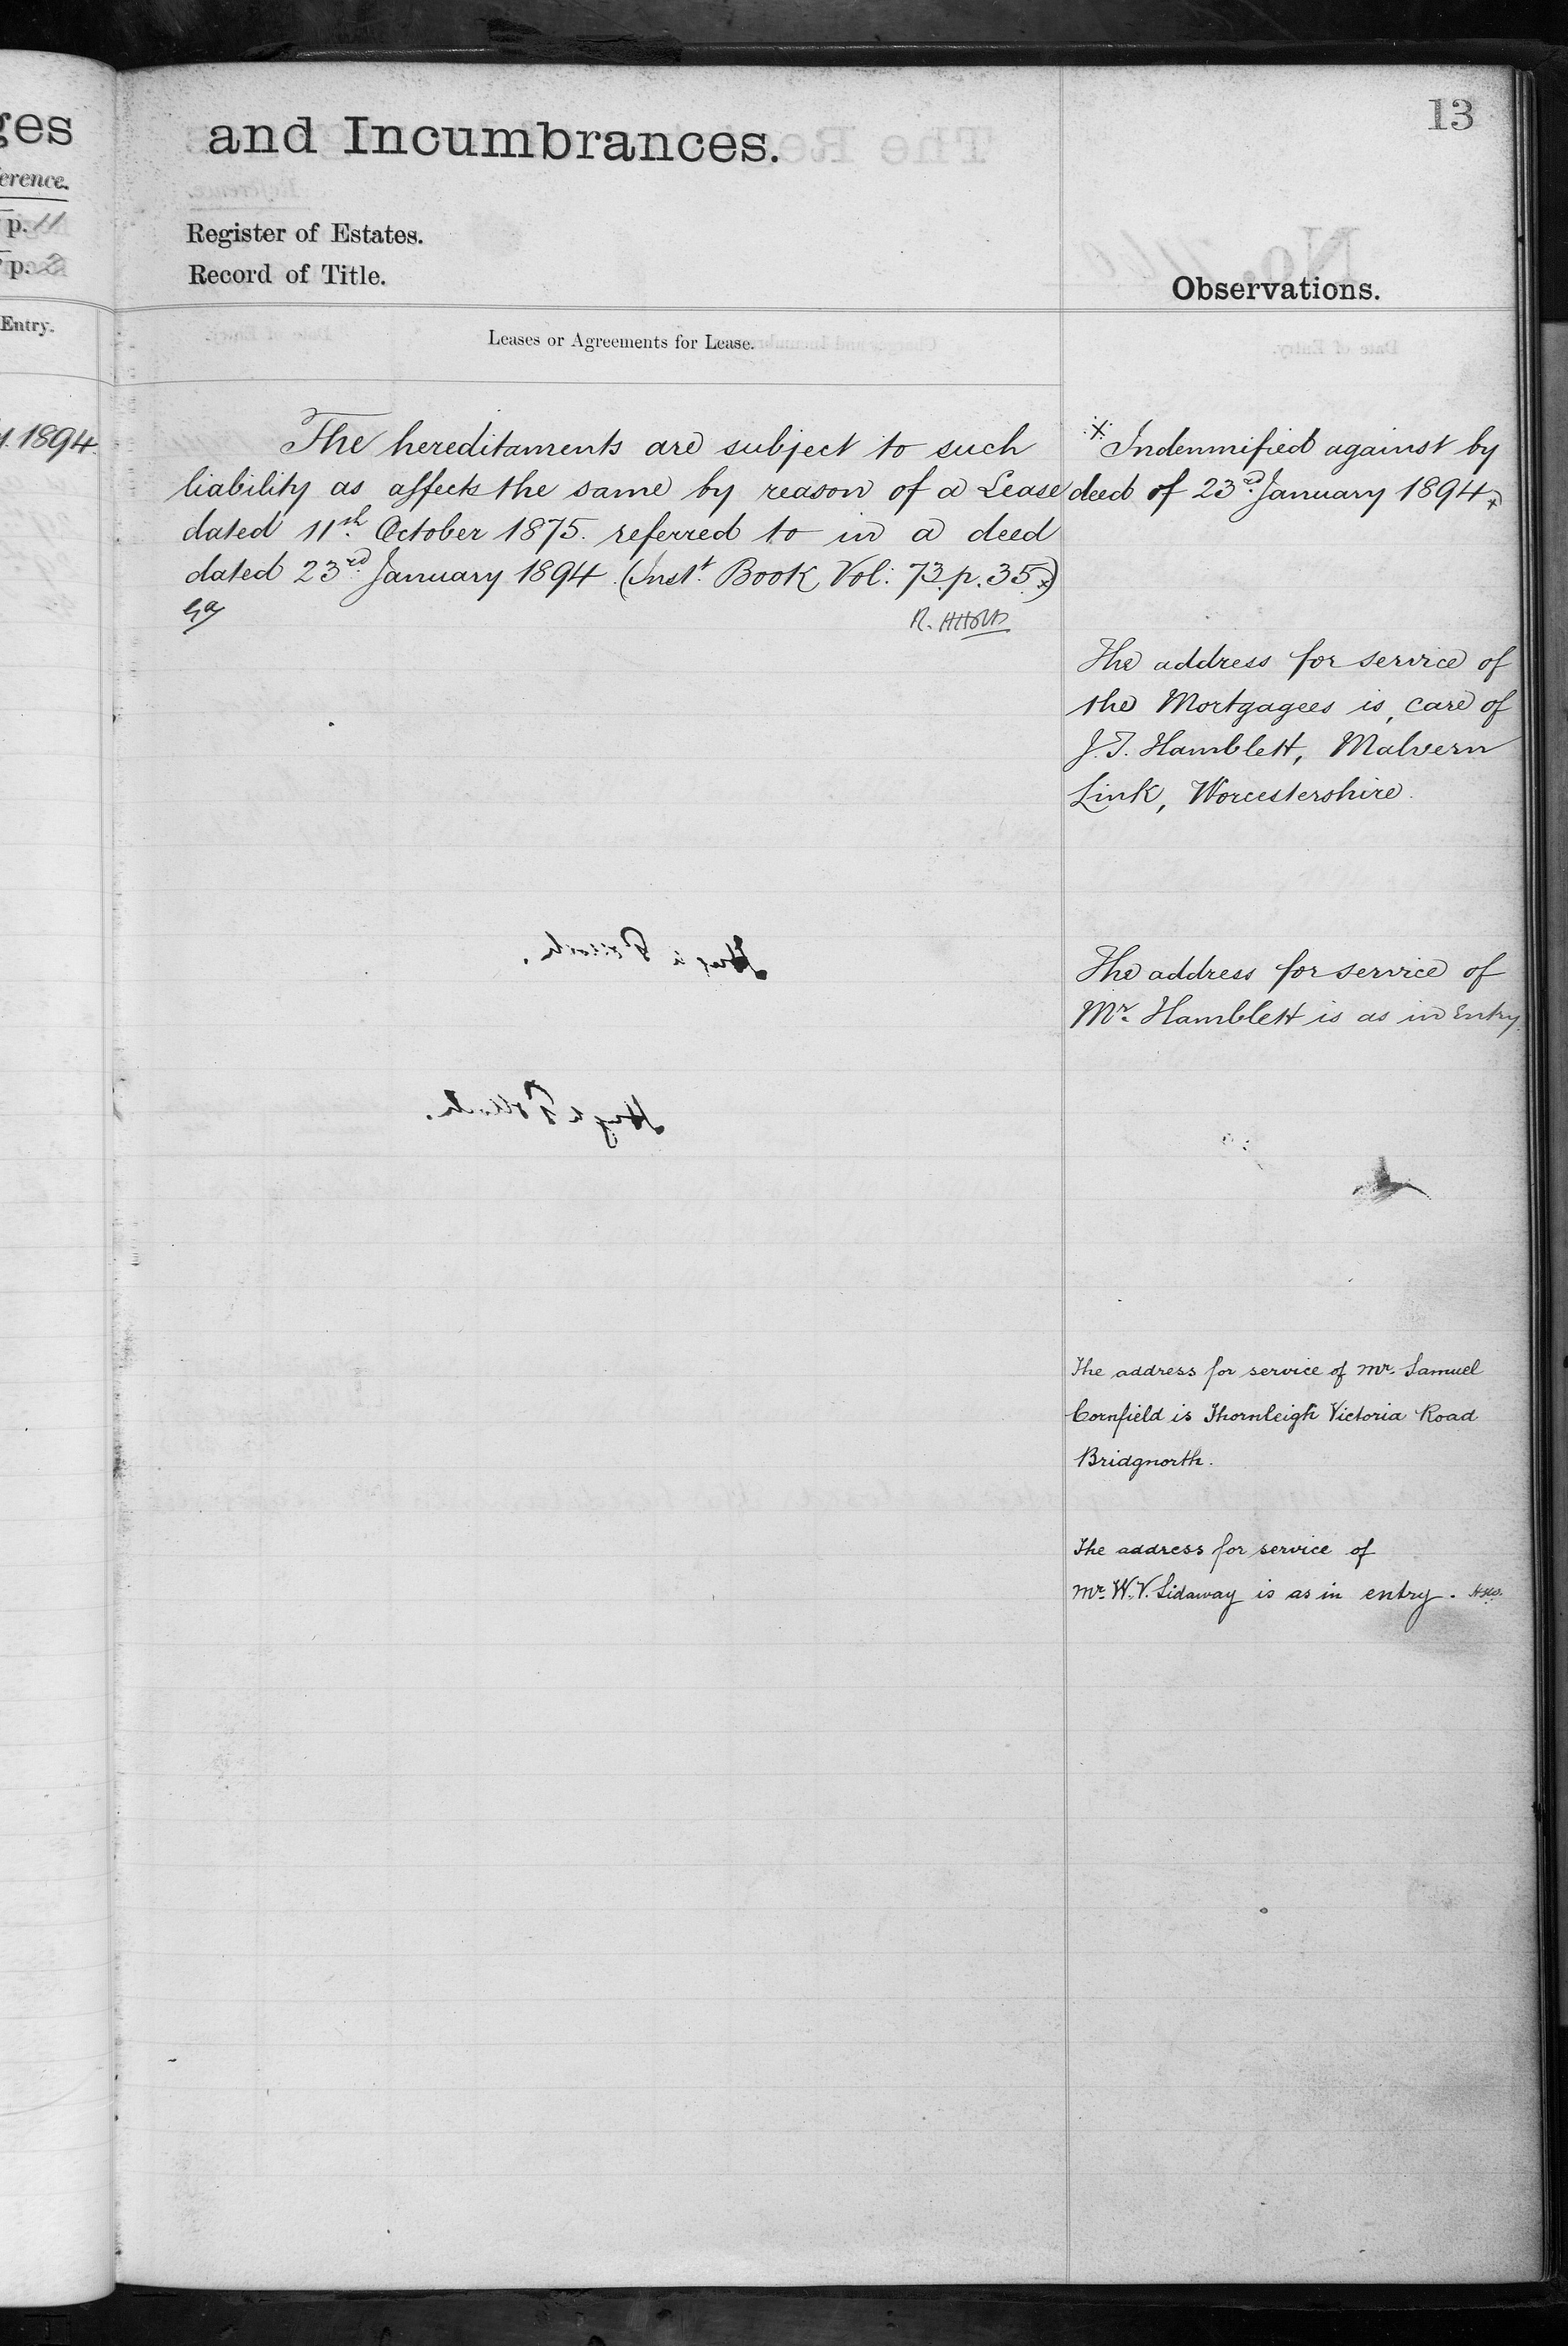 ges
erence.
p. 11
p. 2
Entry.
1894.
13
and Incumbrances.
Register of Estates.
Record of Title.
Observations.
Leases or Agreements for Lease.
The hereditaments are subject to such
liability as affects the same by reason of a Lease
dated 11th October 1875. referred to in a deed
dated 23rd January 1894 (Inst. Book Vol: 73. p. 35 x)
x Indemnified against by
deed of 23rd January 1894 x
The address for service of
the Mortgagees is, care of
J. T. Hamblett, Malvern
Link, Worcestershire.
The address for service of
Mr. Hamblett is as in Entry.
Hugh Pollock.
The address for service of Mr. Samuel
Cornfield is Thornleigh Victoria Road
Bridgnorth.
The address for service of
Mr. W. V. Sidaway is as in entry.